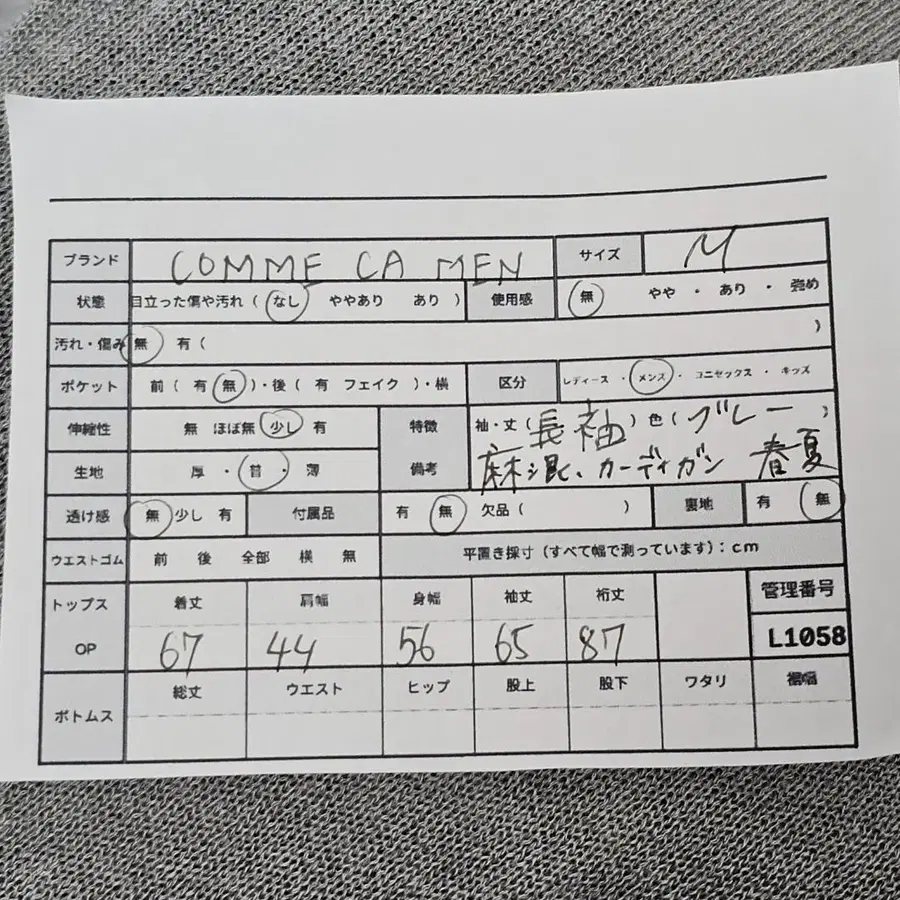 ブランド COMME CA MEN サイズ M
状態 目立った傷や汚れ ( なし ややあり あり ) 使用感 無 やや ・ あり ・ 強め
汚れ・傷み 無 有 ( )
ポケット 前 ( 有 無 )・後 ( 有 フェイク )・横 区分 レディース ・ メンズ ・ ユニセックス ・ キッズ
伸縮性 無 ほぼ無 少し 有 特徴 袖・丈 ( 長袖 ) 色 ( グレー )
生地 厚 ・ 普 ・ 薄 備考 麻混、カーディガン 春夏
透け感 無 少し 有 付属品 有 無 欠品 ( ) 裏地 有 無
ウエストゴム 前 後 全部 横 無 平置き採寸 (すべて幅で測っています) : cm
トップス 着丈 肩幅 身幅 袖丈 裄丈 管理番号
OP 67 44 56 65 87 L1058
ボトムス 総丈 ウエスト ヒップ 股上 股下 ワタリ 裾幅